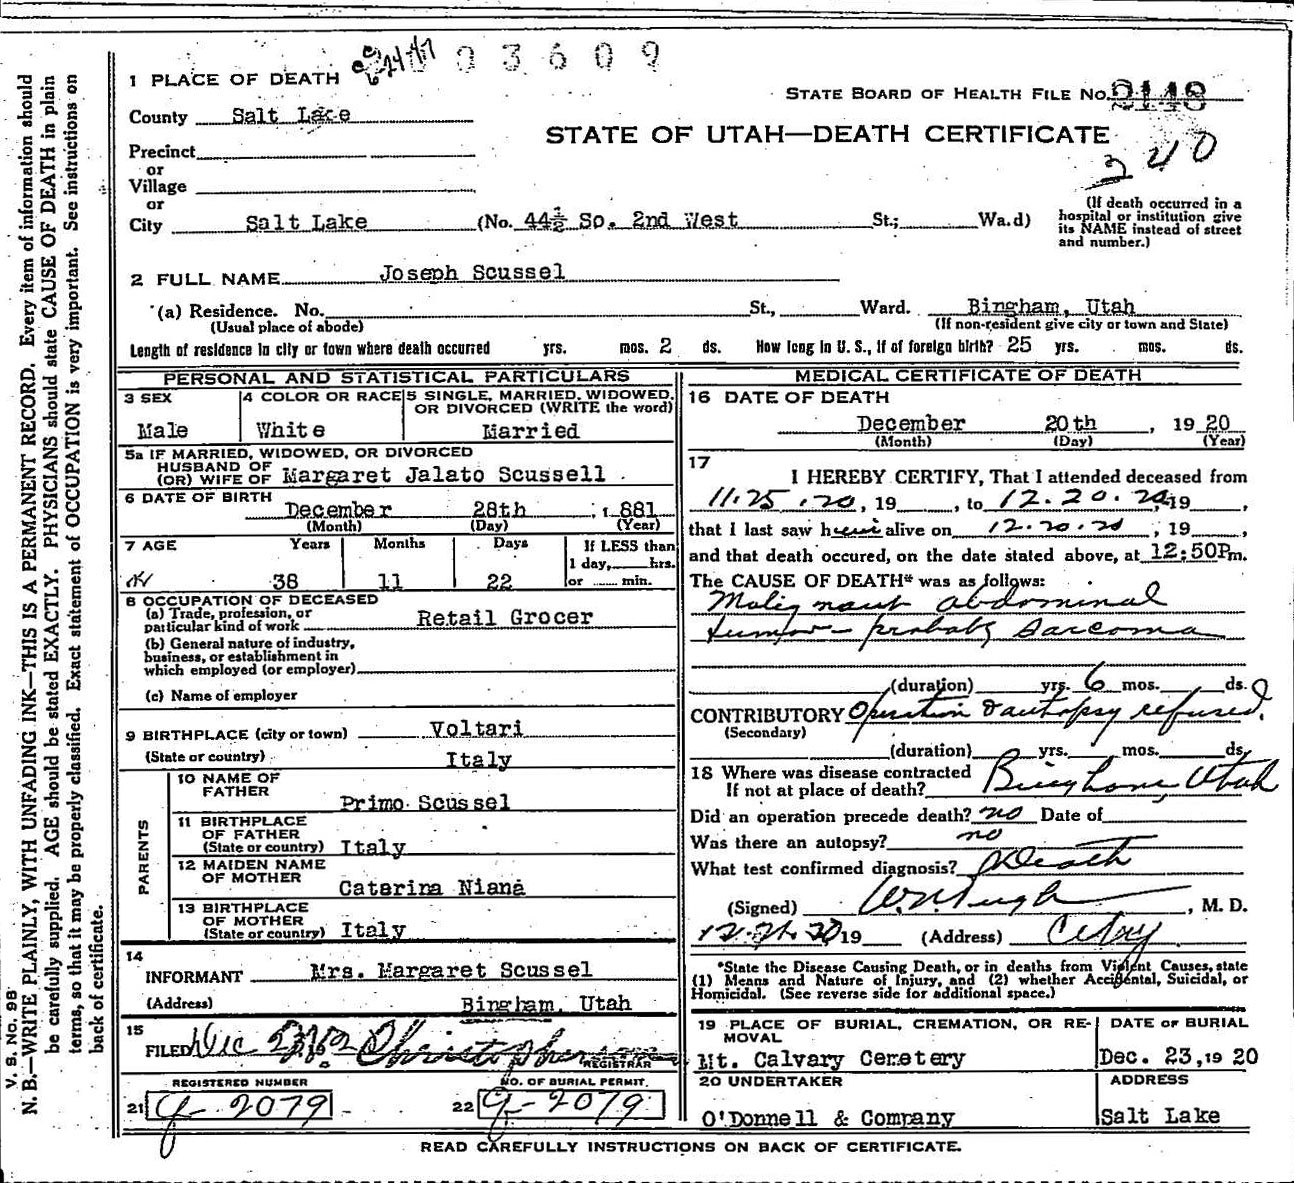 03609
1 PLACE OF DEATH
STATE BOARD OF HEALTH FILE No. 2148
County Salt Lace
STATE OF UTAH—DEATH CERTIFICATE
240
Precinct
or
Village
or
City Salt Lake (No. 44½ So. 2nd West St.; Wa.d)
(If death occurred in a
hospital or institution give
its NAME instead of street
and number.)
2 FULL NAME Joseph Scussel
(a) Residence. No. St., Ward. Bingham, Utah
(Usual place of abode) (If non-resident give city or town and State)
Length of residence in city or town where death occurred yrs. mos. 2 ds. How long in U. S., if of foreign birth? 25 yrs. mos. ds.
PERSONAL AND STATISTICAL PARTICULARS
3 SEX 4 COLOR OR RACE 5 SINGLE, MARRIED, WIDOWED,
OR DIVORCED (WRITE the word)
Male White Married
5a IF MARRIED, WIDOWED, OR DIVORCED
HUSBAND OF
(OR) WIFE OF Margaret Jalato Scussell
6 DATE OF BIRTH
December 28th , 1881
(Month) (Day) (Year)
7 AGE Years Months Days If LESS than
1 day, hrs.
38 11 22 or min.
8 OCCUPATION OF DECEASED
(a) Trade, profession, or
particular kind of work Retail Grocer
(b) General nature of industry,
business, or establishment in
which employed (or employer)
(c) Name of employer
9 BIRTHPLACE (city or town) Voltari
(State or country) Italy
PARENTS
10 NAME OF
FATHER
Primo Scussel
11 BIRTHPLACE
OF FATHER
(State or country) Italy
12 MAIDEN NAME
OF MOTHER
Caterina Niana
13 BIRTHPLACE
OF MOTHER
(State or country) Italy
14
INFORMANT Mrs. Margaret Scussel
(Address) Bingham, Utah
15
FILED Dec Christopherson
REGISTRAR
REGISTERED NUMBER NO. OF BURIAL PERMIT.
21 G-2079 22 G-2079
MEDICAL CERTIFICATE OF DEATH
16 DATE OF DEATH
December 20th , 1920
(Month) (Day) (Year)
17
I HEREBY CERTIFY, That I attended deceased from
11.25.20, 19 , to 12.20.20, 19 ,
that I last saw him alive on 12.20.20 , 19 ,
and that death occured, on the date stated above, at 12:50P.m.
The CAUSE OF DEATH* was as follows:
Malignant abdominal
tumor - probably sarcoma
(duration) yrs. 6 mos. ds.
CONTRIBUTORY Operation & autopsy refused.
(Secondary)
(duration) yrs. mos. ds.
18 Where was disease contracted
If not at place of death? Bingham, Utah
Did an operation precede death? no Date of
Was there an autopsy? no
What test confirmed diagnosis? Death
(Signed) , M. D.
12.21.20 19 (Address) City
*State the Disease Causing Death, or in deaths from Violent Causes, state
(1) Means and Nature of Injury, and (2) whether Accidental, Suicidal, or
Homicidal. (See reverse side for additional space.)
19 PLACE OF BURIAL, CREMATION, OR RE-
MOVAL
DATE OF BURIAL
Mt. Calvary Cemetery Dec. 23, 19 20
20 UNDERTAKER ADDRESS
O'Donnell & Company Salt Lake
READ CAREFULLY INSTRUCTIONS ON BACK OF CERTIFICATE.
V. S. No. 98
N. B.—WRITE PLAINLY, WITH UNFADING INK—THIS IS A PERMANENT RECORD. Every item of information should
be carefully supplied. AGE should be stated EXACTLY. PHYSICIANS should state CAUSE OF DEATH in plain
terms, so that it may be properly classified. Exact statement of OCCUPATION is very important. See instructions on
back of certificate.